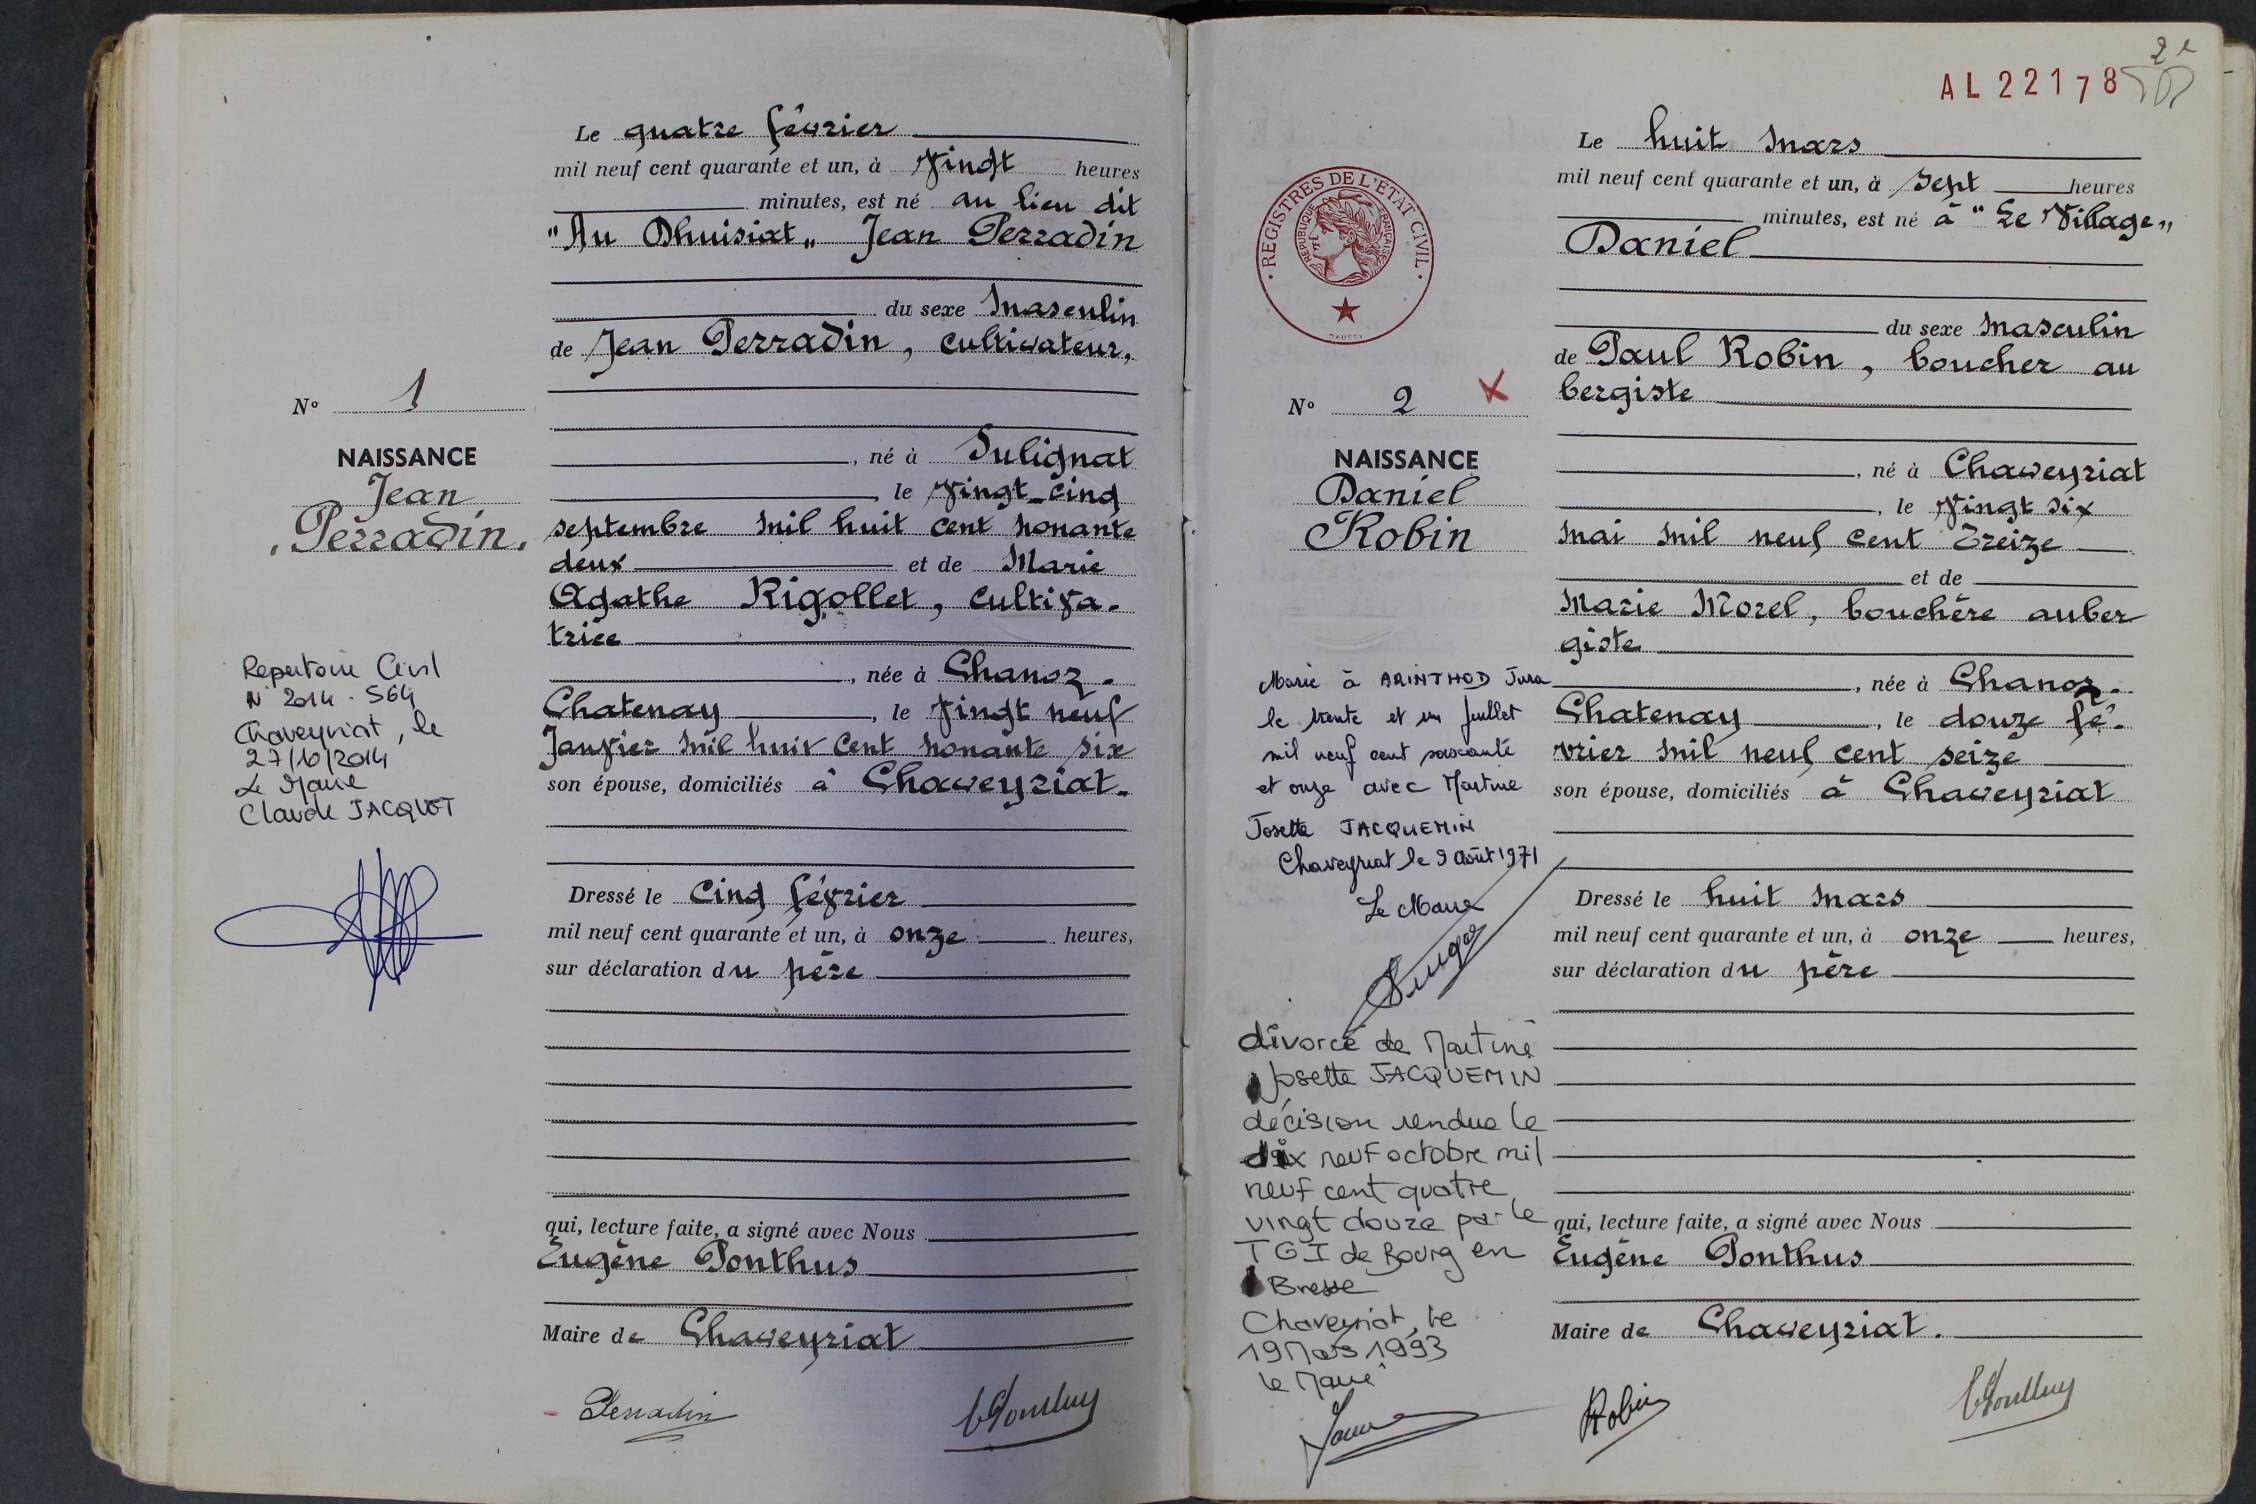 Le quatre février
mil neuf cent quarante et un, à vingt heures
minutes, est né au lieu dit
"Au Dhuisiat" Jean Perradin
du sexe masculin
de Jean Perradin, cultivateur,
né à Sulignat
, le vingt-cinq
septembre mil huit cent nonante
deux et de Marie
Agathe Rigollet, cultiva-
trice
, née à Chanoz-
Chatenay, le vingt neuf
Janvier mil huit cent nonante six
son épouse, domiciliés à Chaveyriat.
Dressé le cinq février
mil neuf cent quarante et un, à onze heures,
sur déclaration du père
qui, lecture faite, a signé avec Nous
Eugène Ponthus
Maire de Chaveyriat
Perradin
Nº 1
NAISSANCE
Jean
Perradin.
Repertoire Civil
N° 2014 - 564
Chaveyriat, le
27/10/2014
Le Maire
Claude JACQUOT
2e
AL22178
REGISTRES DE L'ETAT CIVIL
REPUBLIQUE FRANÇAISE
Le huit mars
mil neuf cent quarante et un, à sept heures
minutes, est né à "Le Village"
Daniel
du sexe masculin
de Paul Robin, boucher au
bergiste
, né à Chaveyriat
, le vingt six
mai mil neuf cent treize
et de
Marie Morel, bouchère auber
giste
, née à Chanoz-
Chatenay, le douze fé-
vrier mil neuf cent seize
son épouse, domiciliés à Chaveyriat
Dressé le huit mars
mil neuf cent quarante et un, à onze heures,
sur déclaration du père
qui, lecture faite, a signé avec Nous
Eugène Ponthus
Maire de Chaveyriat.
Robin
Nº 2
NAISSANCE
Daniel
Robin
Marié à ARINTHOD Jura
le trente et un juillet
mil neuf cent soixante
et onze avec Martine
Josette JACQUEMIN
Chaveyriat le 9 août 1971
Le Maire
divorcé de Martine
Josette JACQUEMIN
décision rendue le
dix neuf octobre mil
neuf cent quatre
vingt douze par le
TGI de Bourg en
Bresse
Chaveyriat, le
19 Mars 1993
le Maire